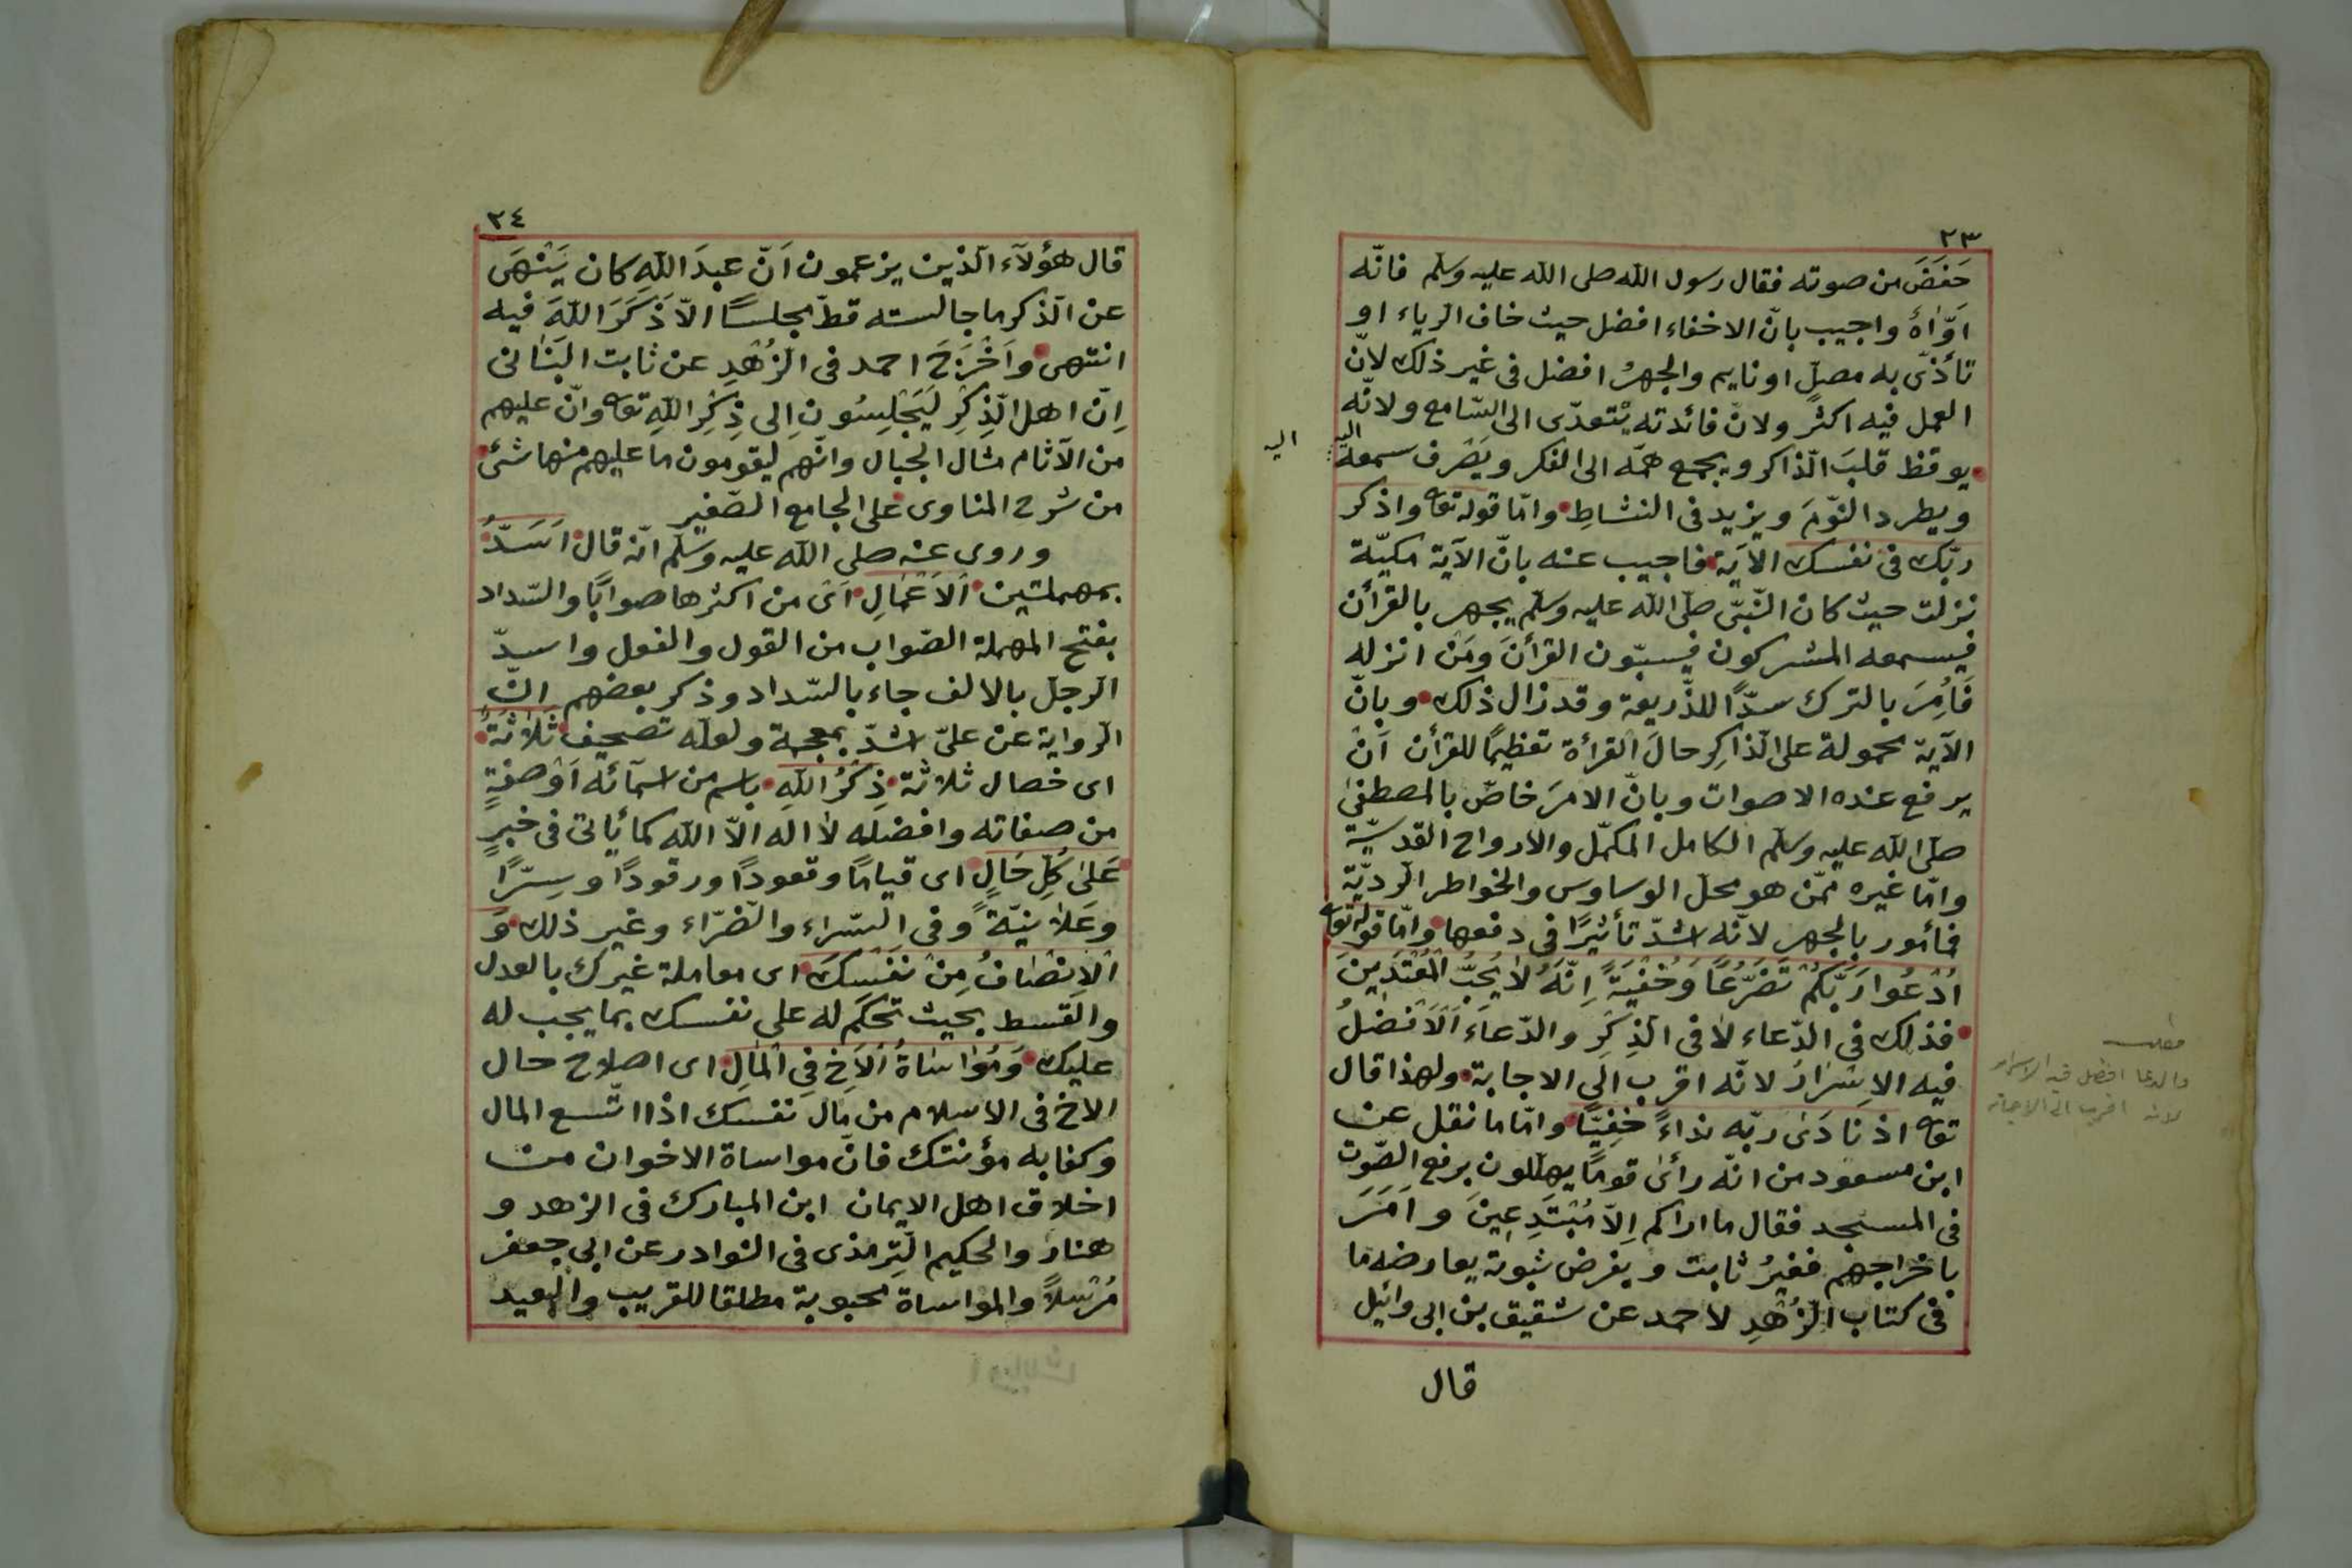 ٢٣
خَفَضَ من صوته فقال رسول الله صلى الله عليه وسلم فانّه
اَوَّاهٌ واجيب بانّ الاخفاء افضل حيث خاف الرياء او
تأذّى به مصلٍّ او نايم والجهرُ افضل فى غير ذلك لانّ
العمل فيه اكثر ولانّ فائدته يتعدّى الى السّامع ولانّه
يوقظ قلبَ الذاكر ويجمع همّه الى الفكر ويَصْرف سمعهُ اليه
اليه
ويطرد النّومَ ويزيد فى النشاطِ وامّا قوله تعا واذكر
ربّك فى نفسك الاَية فاجيب عنه بانّ الآية مكيّة
نزلت حيث كان النّبىّ صلّى الله عليه وسلم يجهر بالقرأن
فيسمعه المشركون فيسبّون القرأنَ ومَن انزله
فَاُمِرَ بالترك سدًّا للذّريعة وقد زال ذلك وبانّ
الآية محمولة على الذاكِر حالَ القرأة تعظيمًا للقرأن اَنْ
يرفع عنده الاصوات وبانّ الامرَ خاصّ بالمصطفىٰ
صلّى الله عليه وسلم الكامل المكمّل والارواح القدسيّة
وامّا غيره ممّن هو محلّ الوساوس والخواطر الرديّة
فمأمور بالجهر لانّه اشدّ تأثيرًا فى دفعها وامّا قوله تعا
اُدْعُوا رَبَّكُمْ تَضَرُّعًا وَخُفْيَةً اِنَّهُ لاٰ يُحِبُّ الْمُعْتَدِينَ
فذلك فى الدّعاء لاٰ فى الذِكِر والدّعاءَ اَلاَفضلُ
فيه الاِسْرَارُ لانّه اقرب الى الاجابة ولهذا قال
تعا اذ نَادَى ربّه نداءً خَفِيًّا وامّا ما نقل عن
ابن مسعود من انّه رأىٰ قومًا يهلّلون برفع الصّوت
فى المسجد فقال ما اراكم اِلاّ مُبْتَدِعِينَ وَاَمَرَ
باخراجهم فغيرُ ثابت وبفرض ثبوته يعارضه ما
فى كتاب الزُهْدِ لاحمد عن شقيق بن ابى وائيل
قال
مطلب
والدعا افضل فيه الاسرار
لانه اقرب الى الاجابة
٢٤
قال هؤلآء الّذين يزعمون اَنّ عبدَ اللهِ كان يَنْهَى
عن الذكر ما جالسته قطّ مجلسًا الاّ ذَكَرَ اللهَ فيه
انتهى واَخْرَجَ احمد فى الزُهْدِ عن ثابت البَنٰانى
اِنّ اهل الّذِكِر لَيَجْلِسُون اِلى ذِكِر اللهِ تعا وانّ عليهم
من الآثام مثال الجبال وانّهم ليقومون ما عليهم منها شئ
من شرح المناوى على الجامع الصّغير
وروى عنه صلى الله عليه وسلم انّه قال اَسَدُّ
بمهملتين اَلاَعْمٰالِ اَىْ من اكثرها صوابًا والسّداد
بفتح المهملة الصّواب من القول والفعل واسدّ
الرجل بالالف جاء بالسّداد وذكر بعضهم انّ
الرواية عن علىّ اشدّ بمعجمة ولعلّه تصحيف ثَلاٰثَةٌ
اى خصال ثلاثة ذِكْرُ اللهِ باسم من اسمآئه اَوْ صفةٍ
من صفاته وافضله لاٰ اله الاّ الله كما يأتى فى خبرٍ
عَلىٰ كُلِّ حٰالٍ اى قيامًا وقعودًا ورقودًا وسِرًّا
وعَلاٰنيَةً وفى السّراء والضّرّاء وغير ذلك وَ
اَلاِنْصٰافُ مِنْ نَفْسِكَ اى معاملة غيرك بالعدل
والقسط بحيث تحكم له على نفسك بما يجب له
عليك وَمُوٰاسٰاةُ اْلاَخِ فِى الْمٰالِ اى اصلاح حال
الاخ فى الاسلام من مال نفسك اذا اتّسع المال
وكفا به مؤنتك فانّ مواساة الاخوان من
اخلاق اهل الايمان ابن المبارك فى الزهد و
هناد والحكيم التِّرمذى فى النوادر عن ابى جعفر
مُرْسلاً والمواساة محبوبة مطلقا للقريب والبعيد